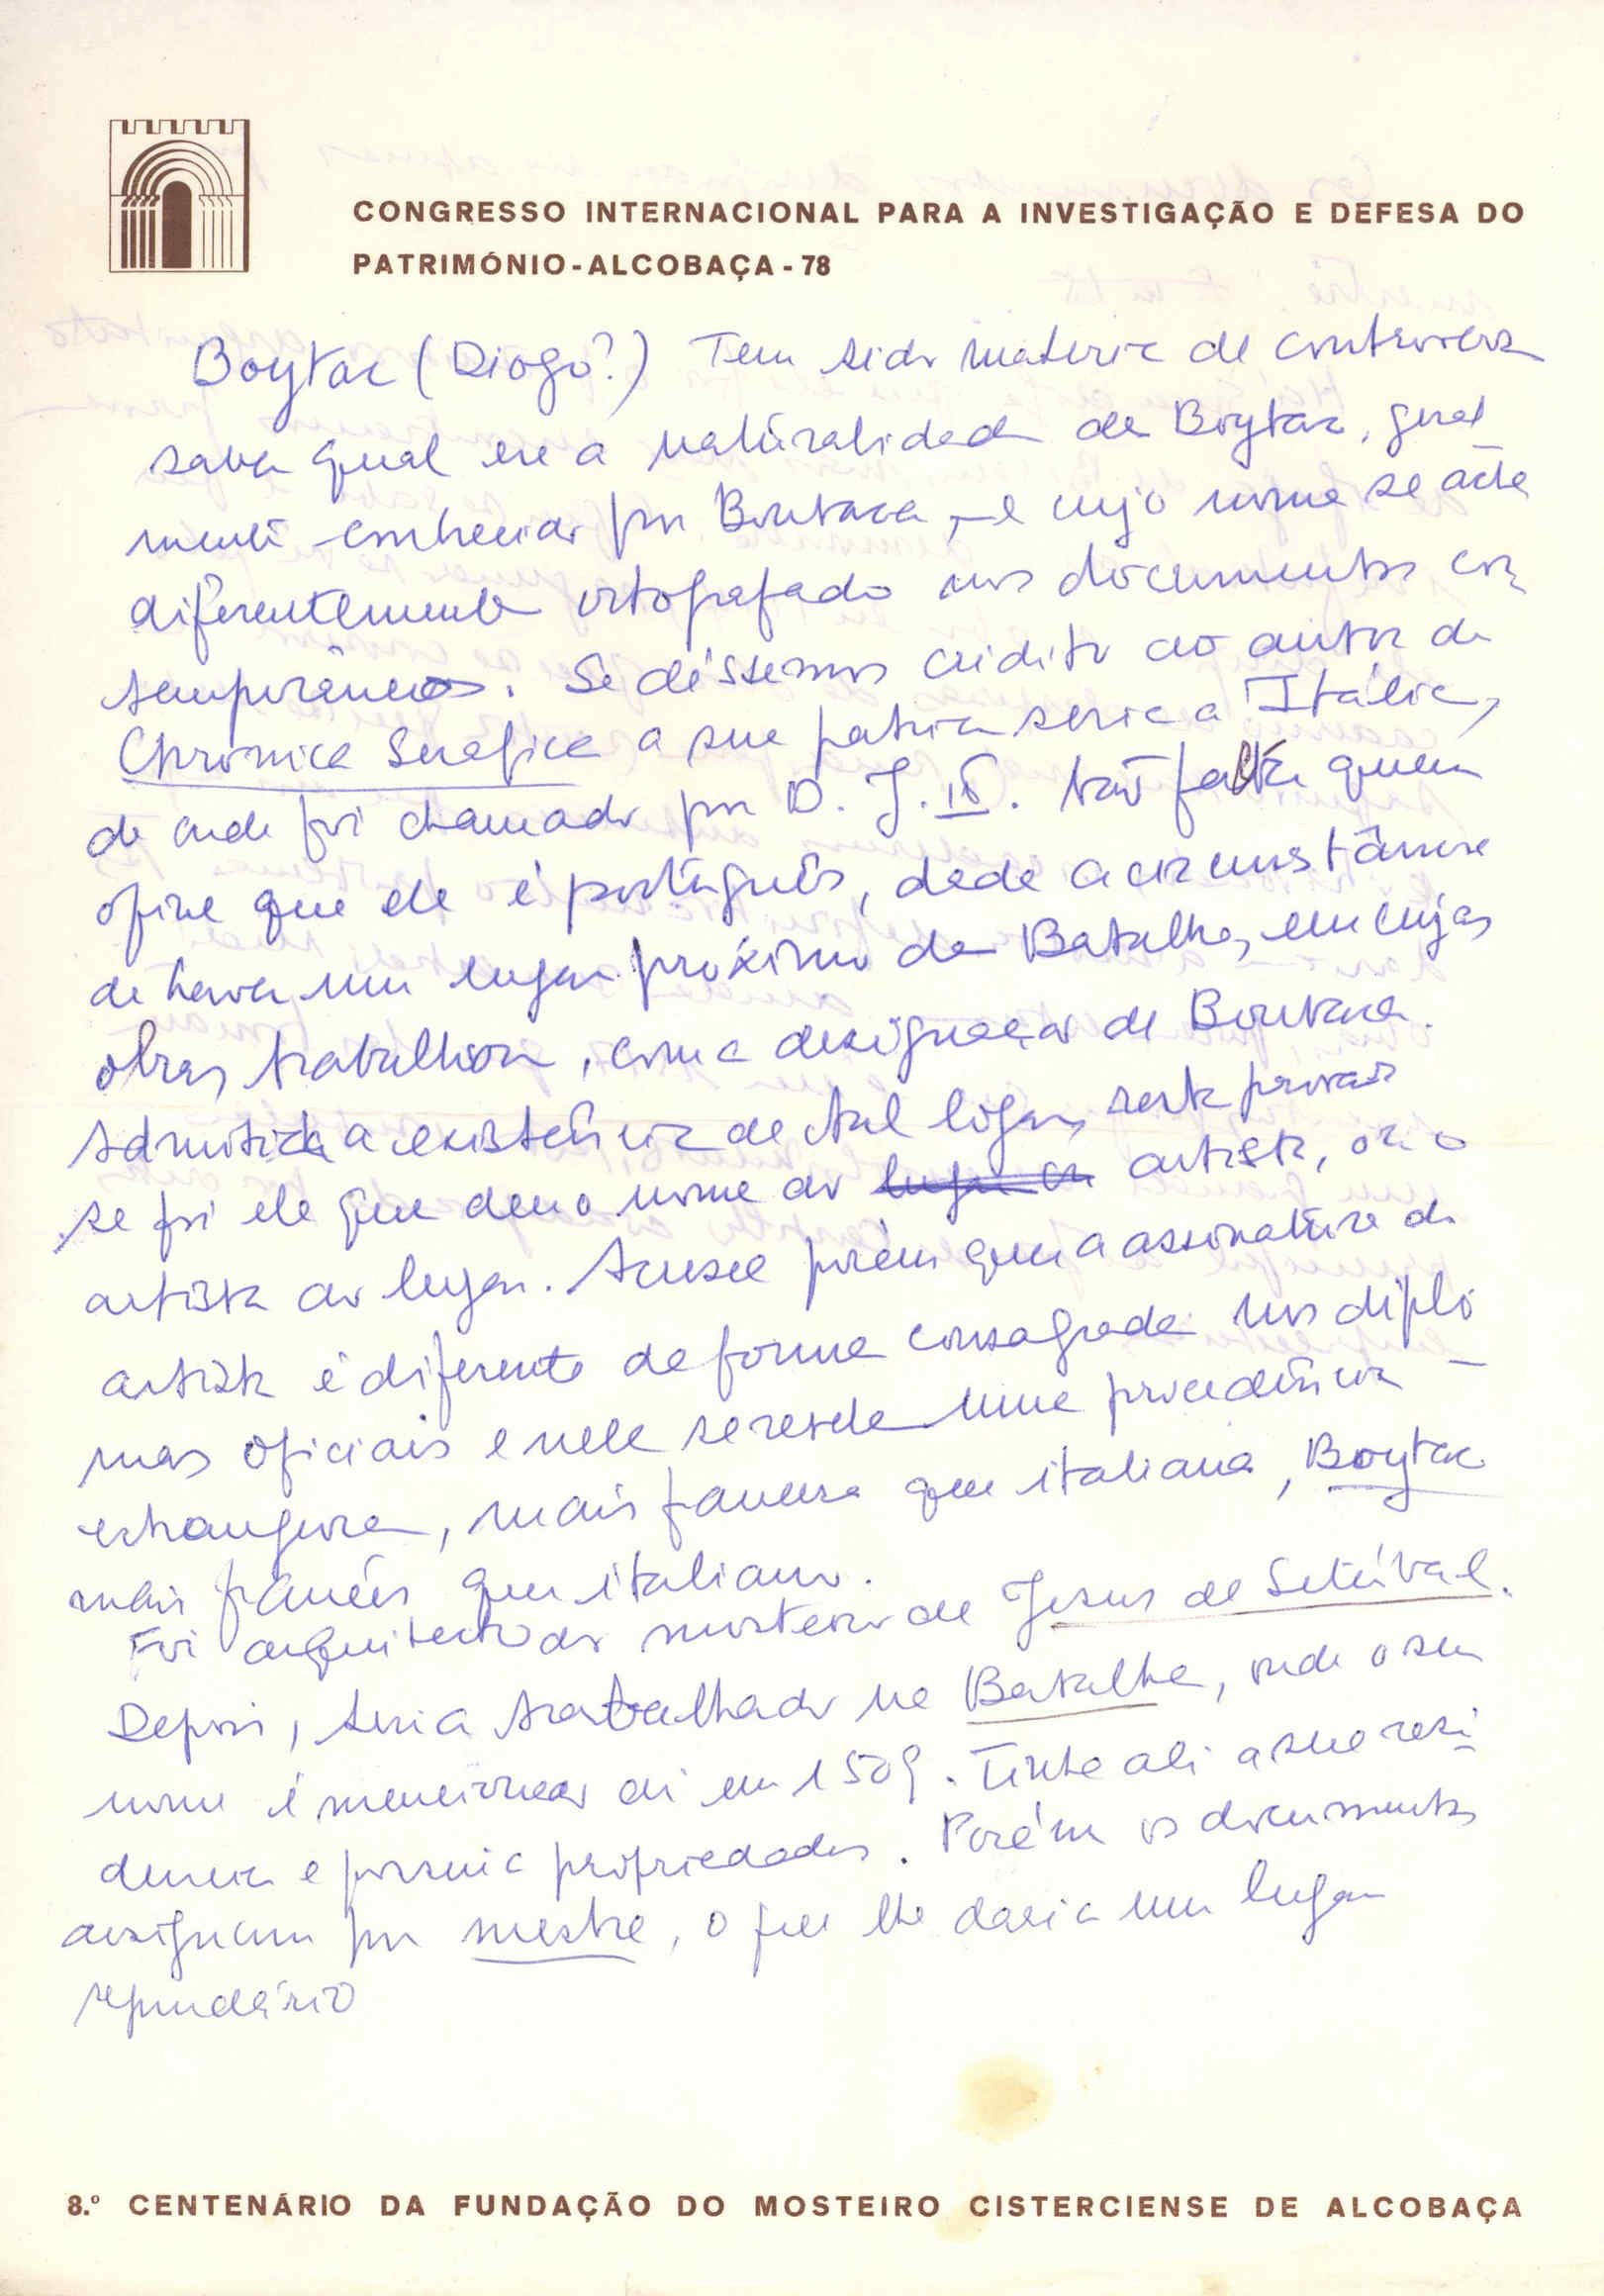 CONGRESSO INTERNACIONAL PARA A INVESTIGAÇÃO E DEFESA DO
PATRIMÓNIO-ALCOBAÇA-78
Boytac (Diogo?) Tem sido materia de controversia
saber qual era a naturalidade de Boytac, geral_
mente conhecido por Boutaca, e cujo nome se acha
diferentemente ortografado nos documentos con
temporâneos. Se déssemos crédito ao autor da
Chronica Serafica a sua patria seria a Itália,
de onde foi chamado por D. J. II. Não falta quem
opine que ele é português, dada a circunstância
de haver um lugar próximo da Batalha, em cujas
obras trabalhou, com a designação de Boutaca.
Admitida a existência de tal lugar, resta provar
se foi ele que deu o nome ao lugar ou artista, ou o
artista ao lugar. Acresce porém que a assinatura do
artista é diferente da forma consagrada nos diplo
mas oficiais e nela se revela uma procedência –
estrangeira, mais francesa que italiana, Boytac
mais francês que italiano.
Foi arquitecto do mosteiro de Jesus de Setúbal.
Depois, teria trabalhado na Batalha, onde o seu
nome é mencionado ai em 1509. Tinha ali a sua resi_
dencia e possuia propriedades. Porém os documentos
designam por mestre, o que lhe daria um lugar
segundário
8.º CENTENÁRIO DA FUNDAÇÃO DO MOSTEIRO CISTERCIENSE DE ALCOBAÇA